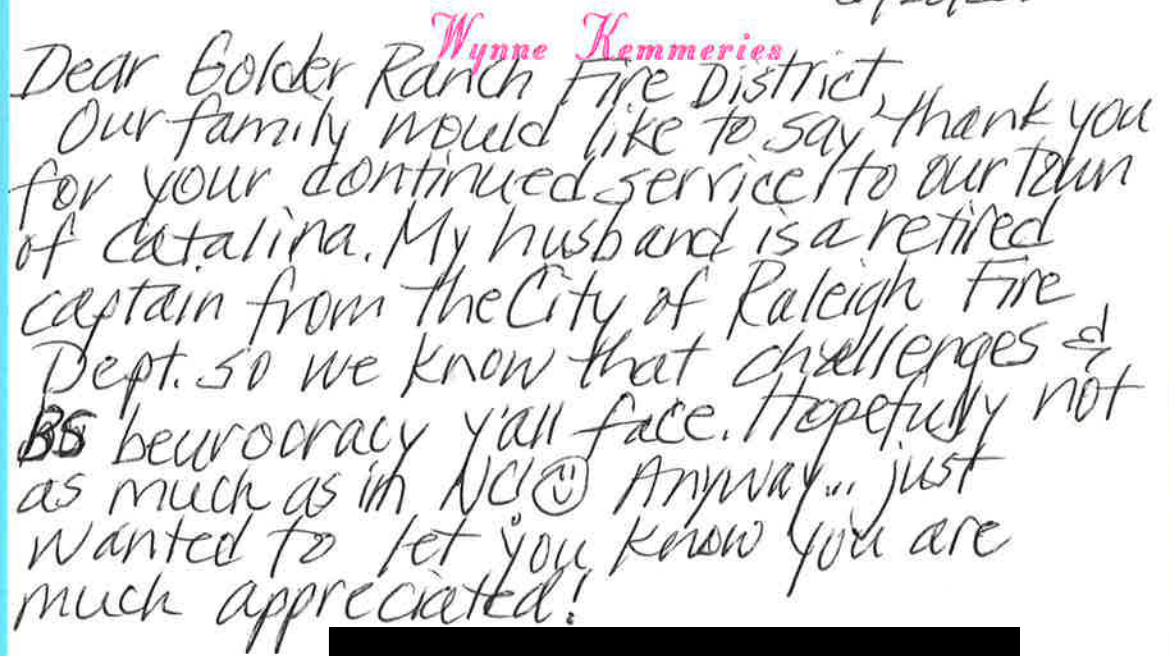 Wynne Kemmeries
Dear Golder Ranch Fire District,
Our family would like to say thank you
for your continued service to our town
of Catalina. My husband is a retired
captain from the City of Raleigh Fire
Dept. so we know that challenges &
BS beurocracy y'all face. Hopefully not
as much as in NC☺ Anyway... just
wanted to let you know you are
much appreciated!